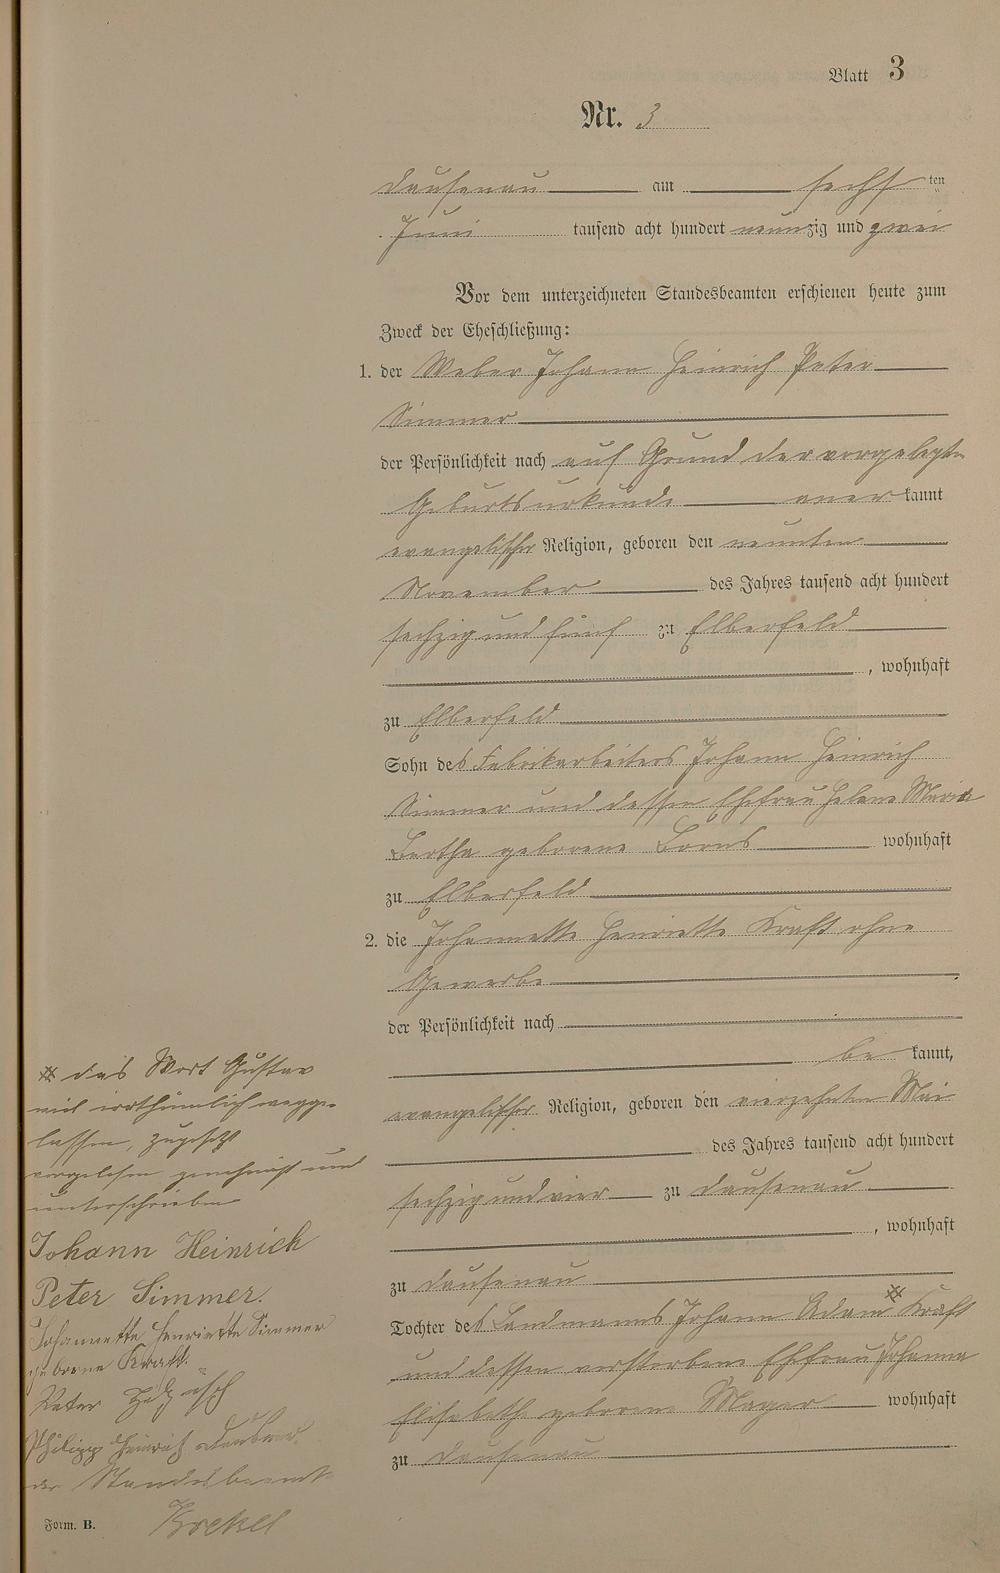 Blatt 3
Nr. 3
Dausenau am sechsten
Juni tausend acht hundert neunzig und zwei
Vor dem unterzeichneten Standesbeamten erschienen heute zum
Zweck der Eheschließung:
1. der Weber Johann Heinrich Peter
Simmer
der Persönlichkeit nach auf Grund der vorgelegten
Geburtsurkunde anerkannt
evangelischer Religion, geboren den neunten
November des Jahres tausend acht hundert
sechzig und fünf zu Elberfeld
, wohnhaft
zu Elberfeld
Sohn des Fabrikarbeiters Johann Heinrich
Simmer und dessen Ehefrau Helene Maria
Bertha geborene Borns wohnhaft
zu Elberfeld
2. die Johannette Henriette Kraft ohne
Gewerbe
der Persönlichkeit nach
bekannt,
evangelischer Religion, geboren den vierzehnten Mai
des Jahres tausend acht hundert
sechzig und vier zu Dausenau
, wohnhaft
zu Dausenau
Tochter des Landmanns Johann Adam Kraft
und dessen verstorbene Ehefrau Johanna
Elisabethe geborene Mager wohnhaft
zu Dausenau
das Wort Gustav
irrthümlich wegge-
lassen, zugesetzt
vorgelesen genehmigt und
unterschrieben
Johann Heinrich
Peter Simmer.
Johannette Henriette Simmer
geborene Kraft.
Peter
Philipp Heinrich
der Standesbeamte
Form. B.